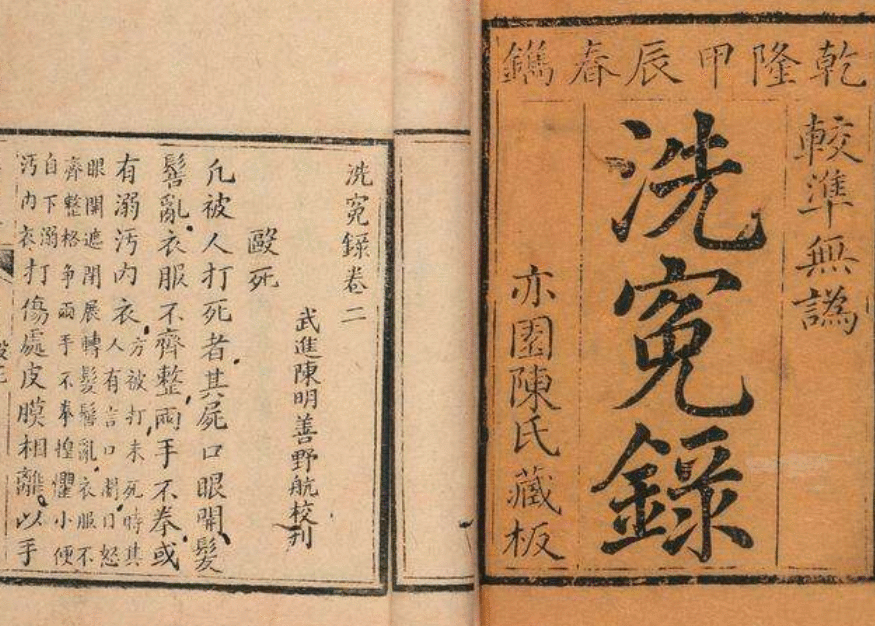 乾隆甲辰春鐫
較準無譌
洗寃錄
亦園陳氏藏板
洗寃錄卷二
武進陳明善野航校刊
毆死
凡被人打死者其屍口眼開髮
髻亂衣服不齊整兩手不拳或
有溺汚內衣方被打未死時其人有言口鬬口怒
眼開遮閉展轉髮髻亂衣服不齊整格爭兩手不拳惶懼小便
自下溺汚內衣打傷處皮膜相離以手